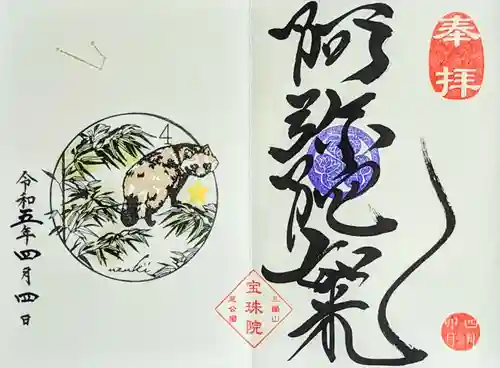 奉拝
阿弥陀如来
三縁山
宝珠院
芝公園
四月
卯月
4
nenki
令和五年四月四日